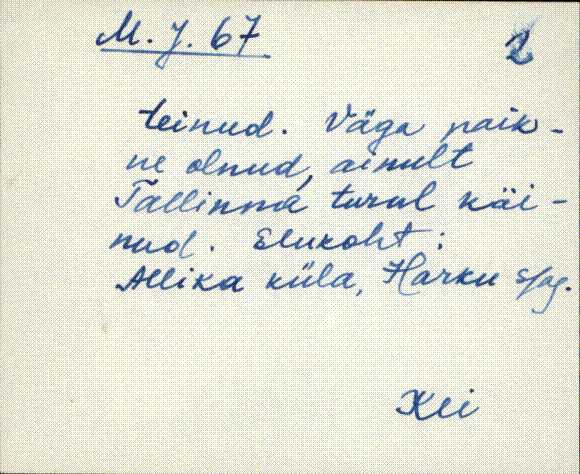 M. J. 67
2
teinud. Väga paik-
ne olnud, ainult
Tallinna turul käi-
nud. Elukoht:
Allika küla, Harku s/ag.
Kei